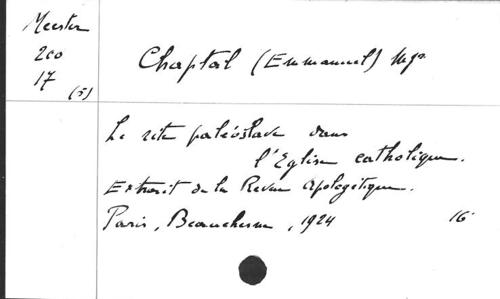 Meester
200
17
(5)
Chaptal (Emmanuel) Mgr
Le rite paléoslave dans
l'Eglise catholique.
Extrait de la Revue Apologétique.
Paris, Beauchesne, 1924 16°